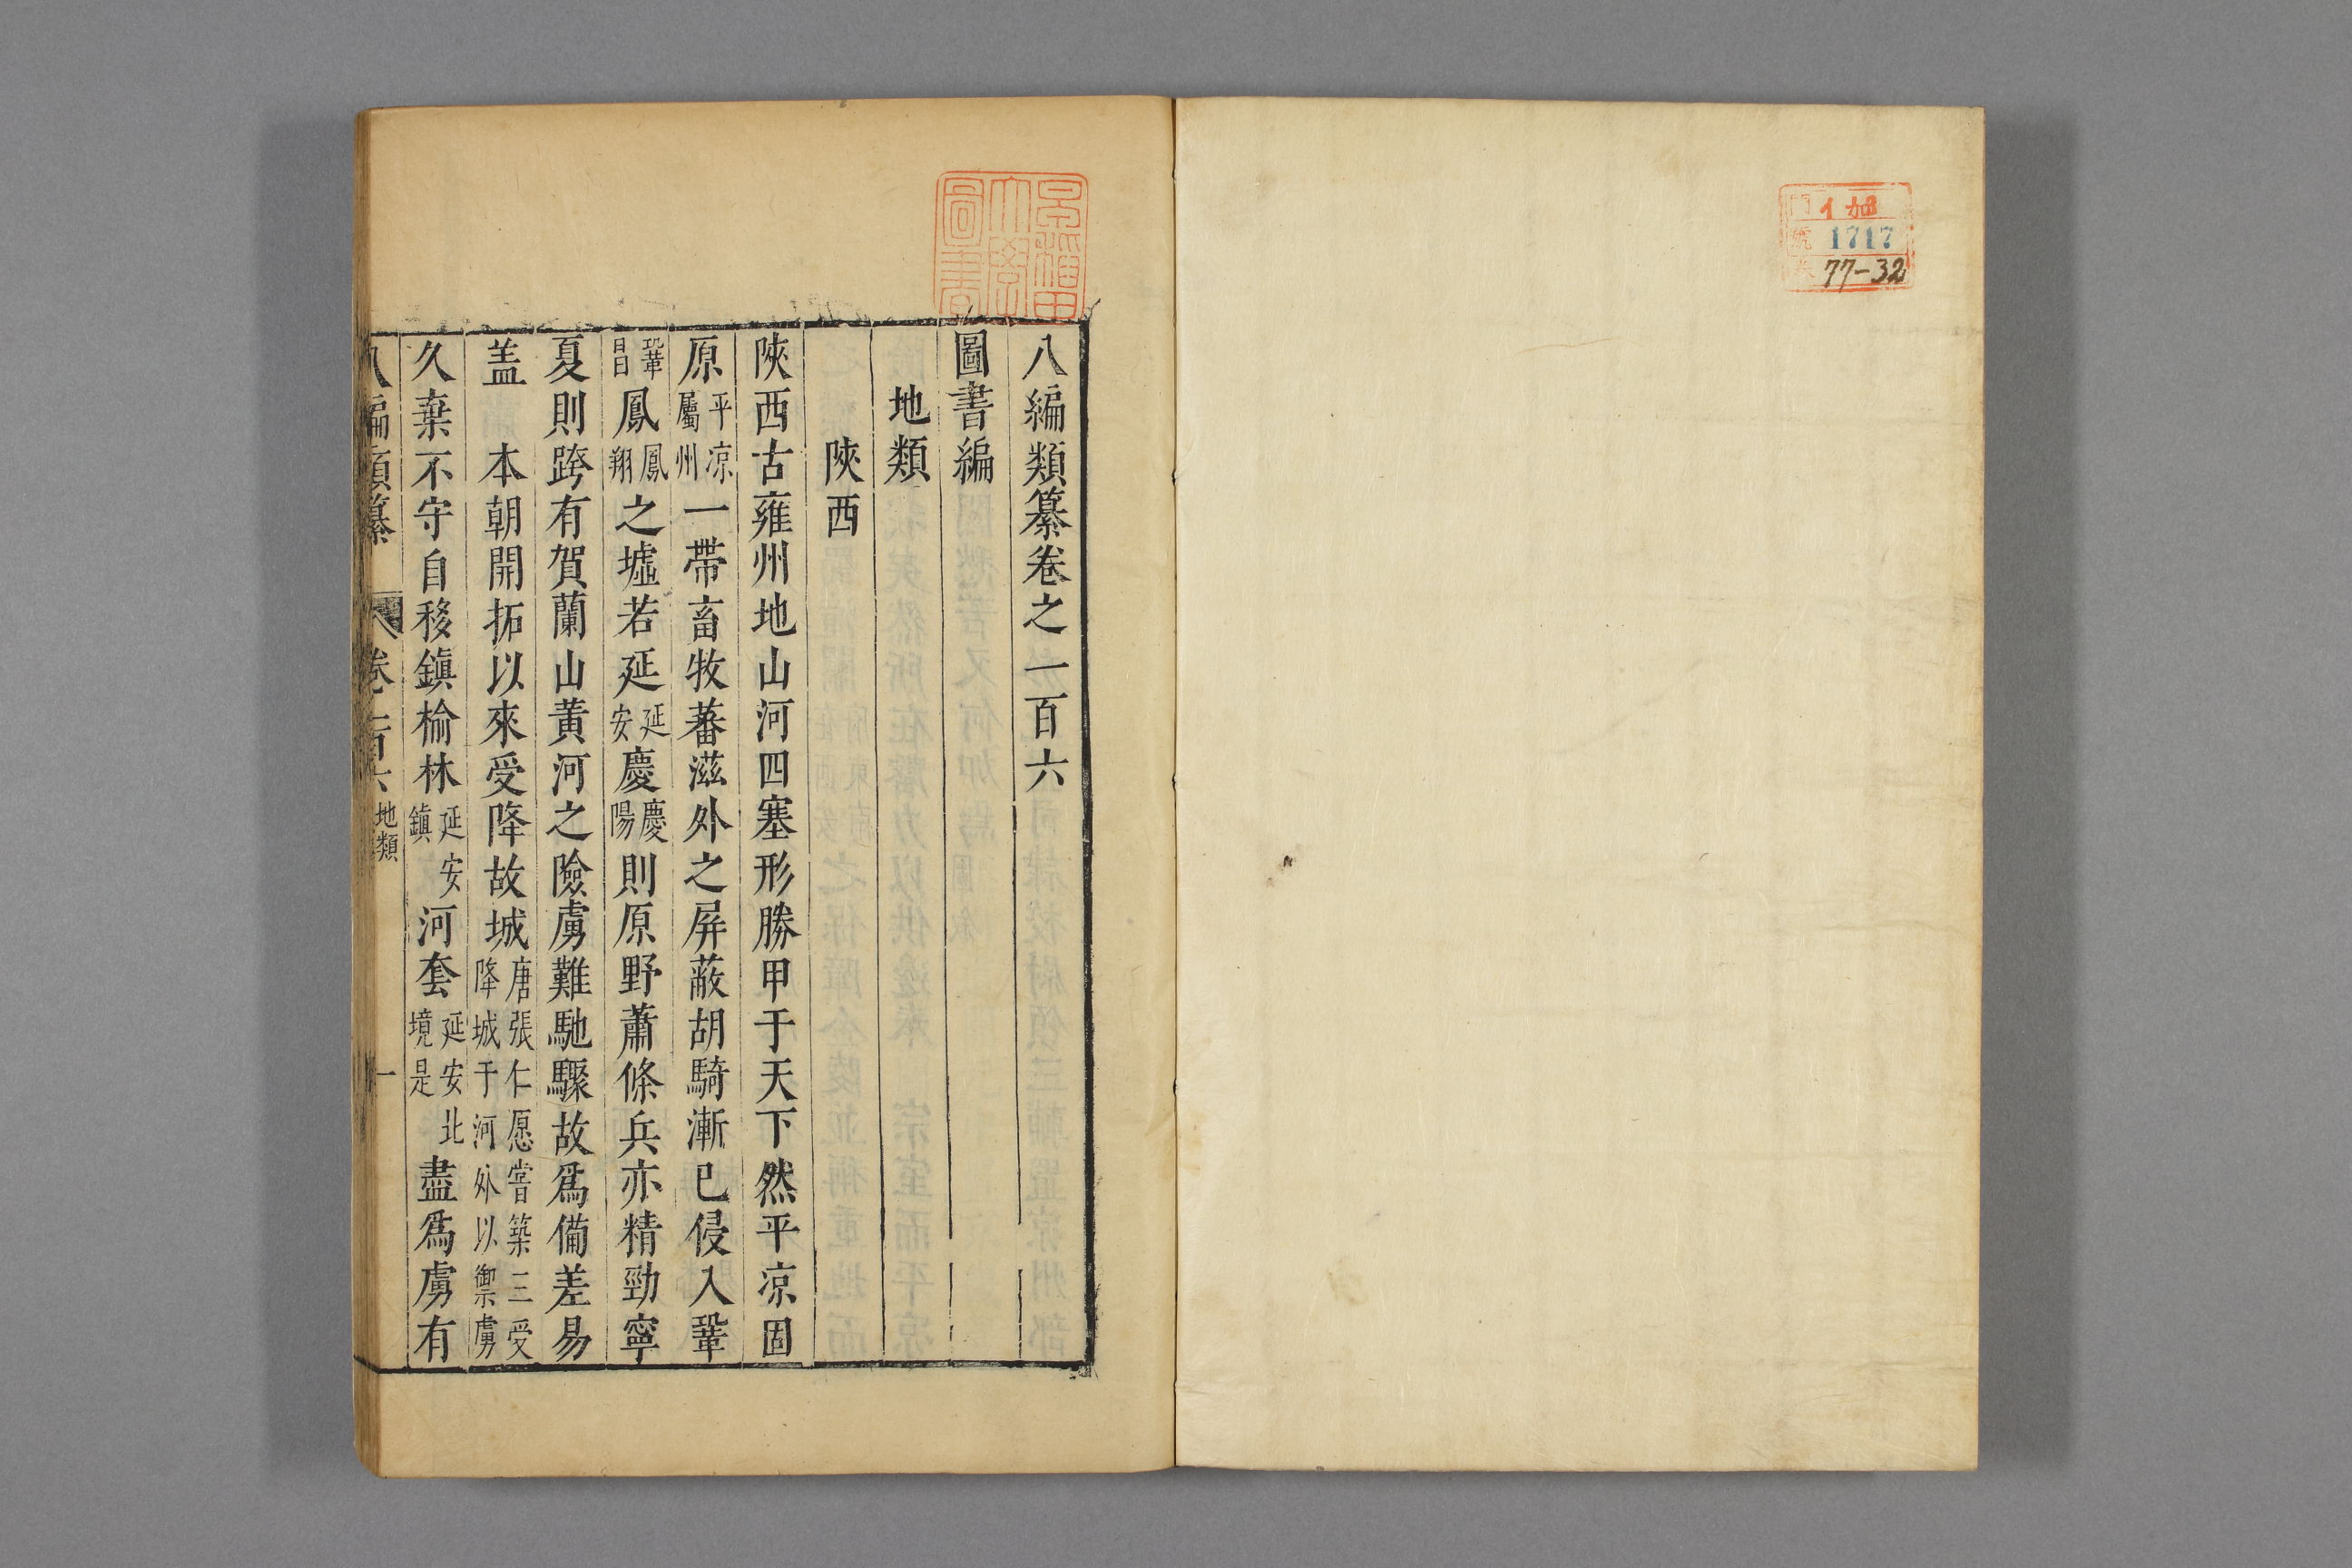 イ 加
1717
77-32
早稲田
大學
圖書
八編類纂卷之一百六
圖書編
地類
陝西
陝西古雍州地山河四塞形勝甲于天下然平凉固
原平凉屬州一帶畜牧蕃滋外之屏蔽胡騎漸已侵入鞏
鞏昌鳳鳳翔之墟若延延安慶慶陽則原野蕭條兵亦精勁寧
夏則跨有賀蘭山黃河之險虜難馳驟故爲備差易
盖 本朝開拓以來受降故城唐張仁愿嘗築三受降城于河外以禦虜
久棄不守自移鎭楡林延安鎭河套延安北境是盡爲虜有
八編類纂 卷一百六 地類 一